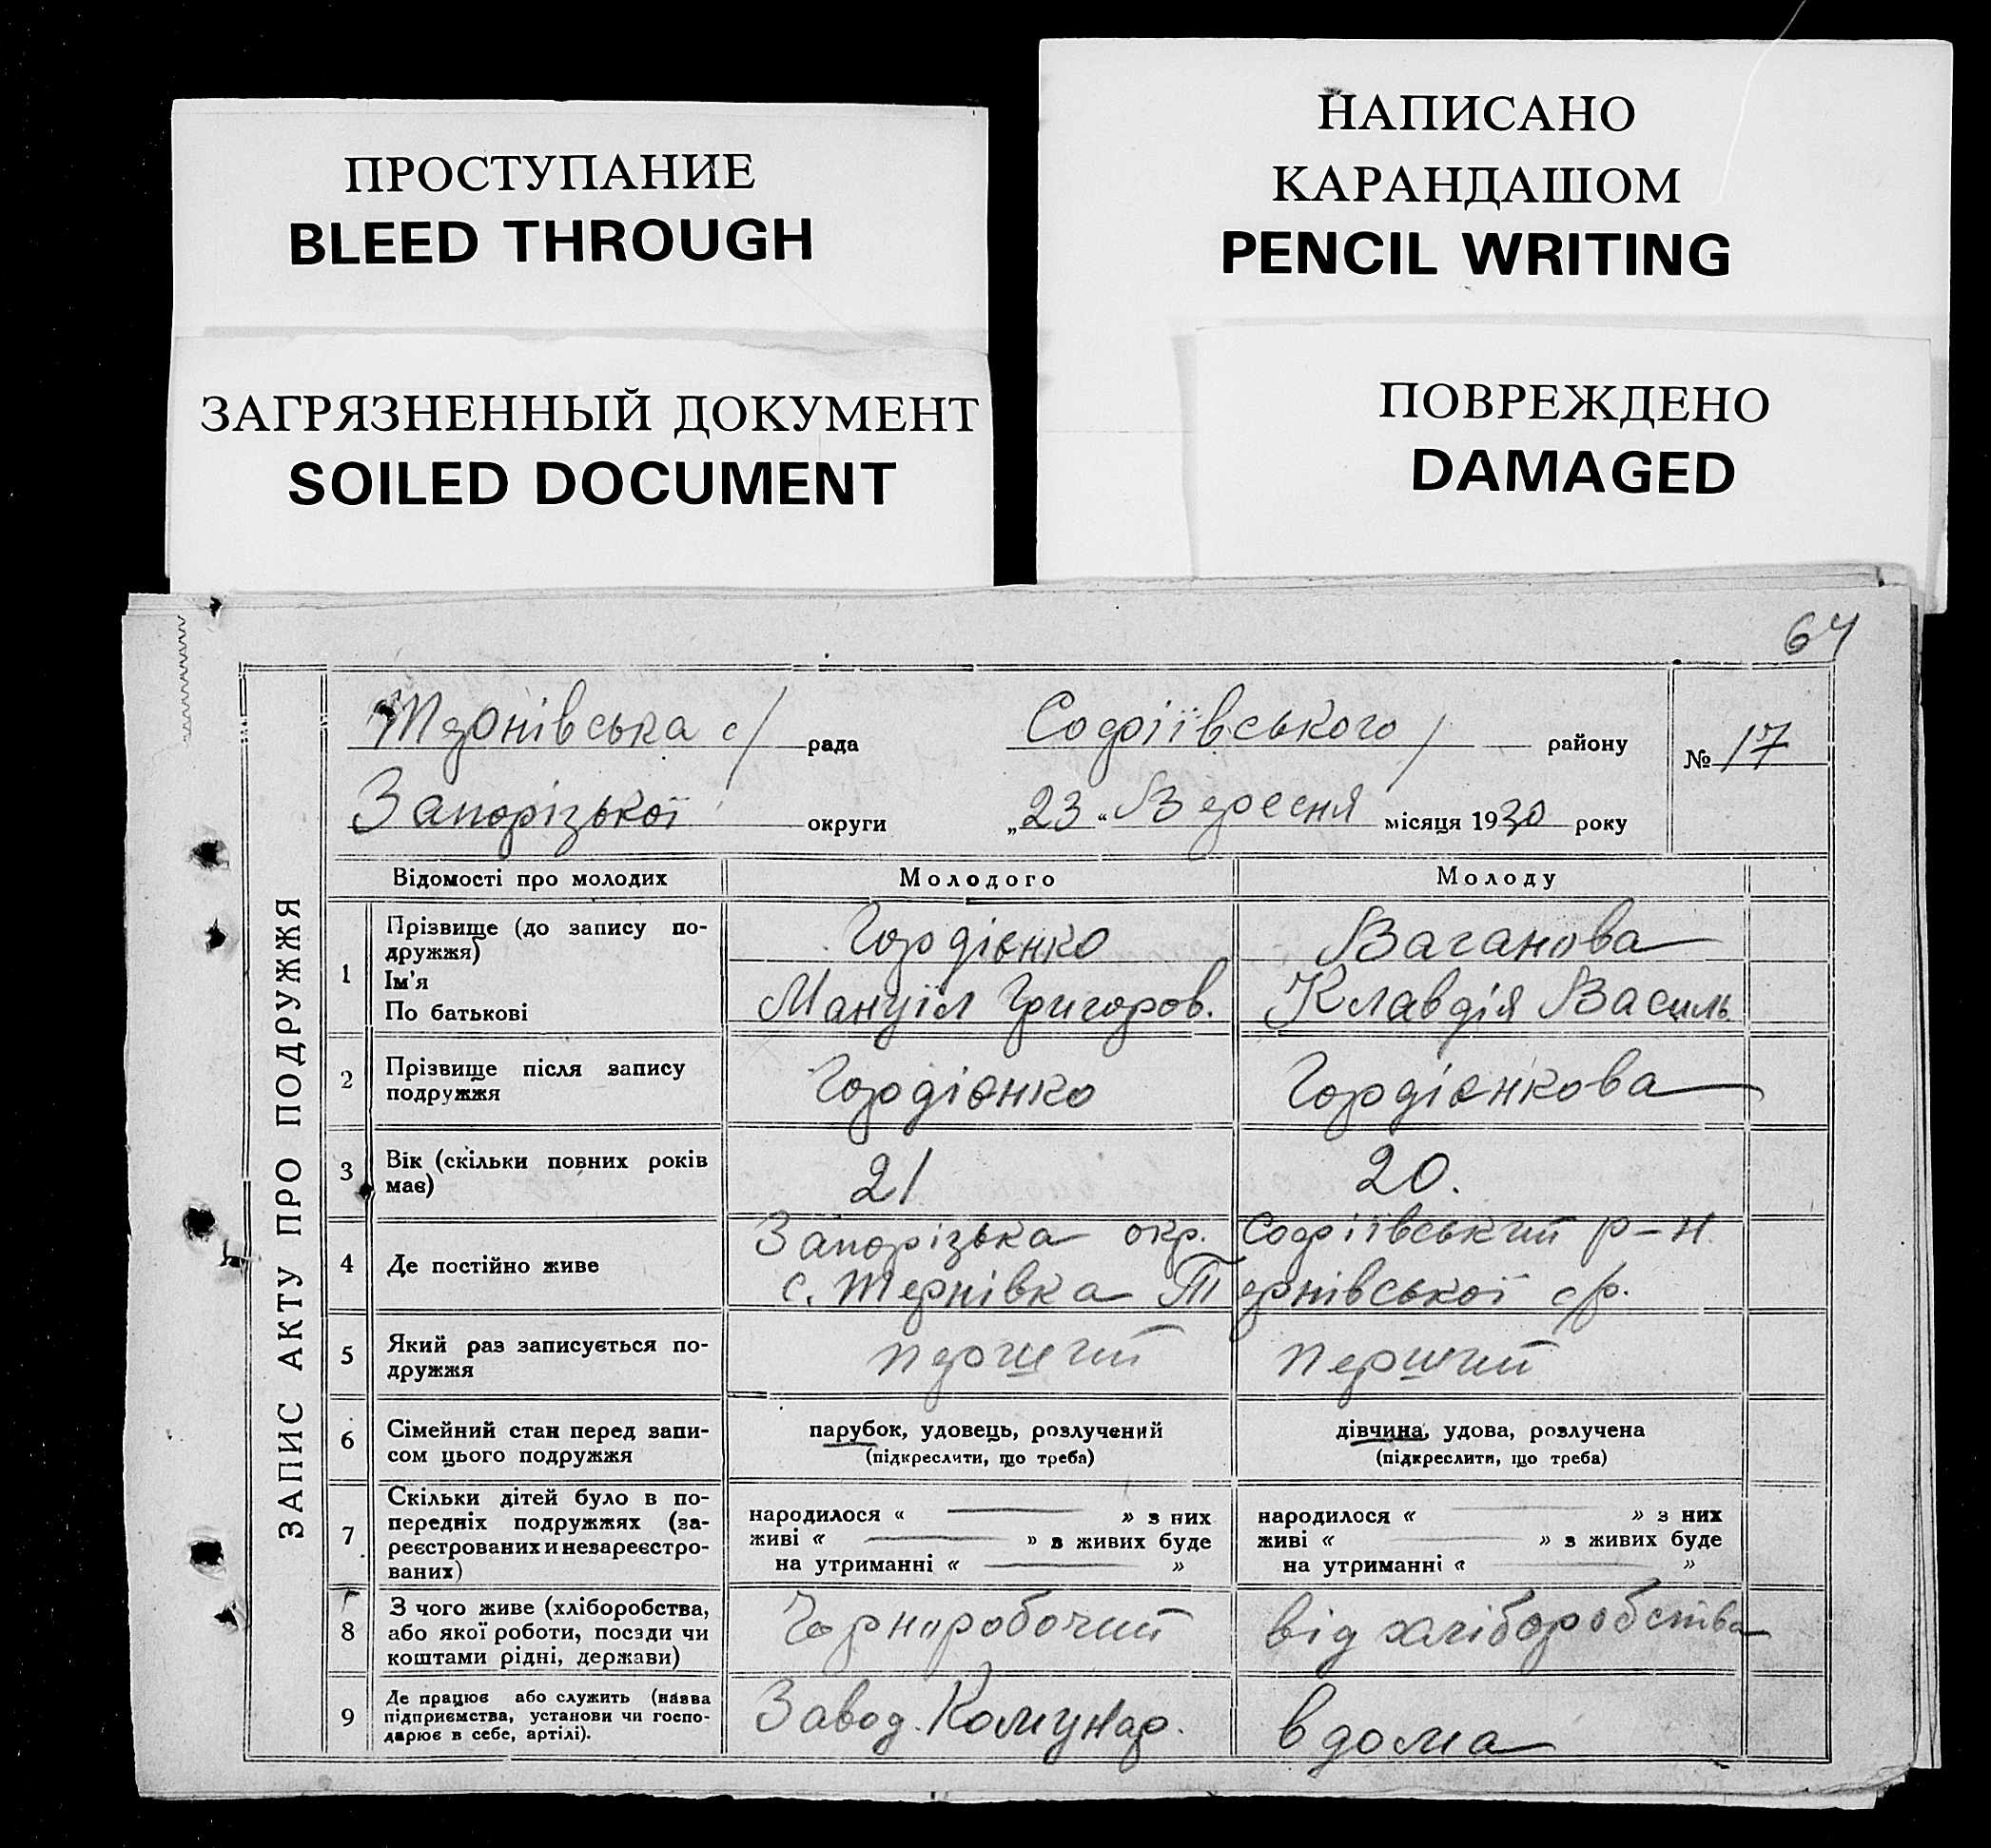 ПРОСТУПАНИЕ
BLEED THROUGH
ЗАГРЯЗНЕННЫЙ ДОКУМЕНТ
SOILED DOCUMENT
НАПИСАНО
КАРАНДАШОМ
PENCIL WRITING
ПОВРЕЖДЕНО
DAMAGED
64
ЗАПИС АКТУ ПРО ПОДРУЖЖЯ
Тернівська с/ рада Софіївського/ району № 17
Запорізької округи „23“ Вересня місяця 1930 року
Відомості про молодих Молодого Молоду
1 Прізвище (до запису по-
дружжя) Гордієнко Ваганова
Ім'я
По батькові Мануїл Григоров. Клавдія Василь.
2 Прізвище після запису
подружжя Гордієнко Гордієнкова
3 Вік (скільки повних років
має) 21 20.
4 Де постійно живе Запорізька окр. Софіївський р-н.
с. Тернівка Тернівської с/р.
5 Який раз записується по-
дружжя перший перший
6 Сімейний стан перед запи-
сом цього подружжя
парубок, удовець, розлучений
(підкреслити, що треба)
дівчина, удова, розлучена
(підкреслити, що треба)
7 Скільки дітей було в по-
передніх подружжях (за-
реєстрованих и незареєстро-
ваних)
народилося « — » з них
живі « — » з живих буде
на утриманні « — »
народилося « — » з них
живі « — » з живих буде
на утриманні « — »
8 З чого живе (хліборобства,
або якої роботи, посади чи
коштами рідні, держави)
Чорноробочий від хліборобства
9 Де працює або служить (назва
підприємства, установи чи госпо-
дарює в себе, артілі).
Завод. Комунар. вдома